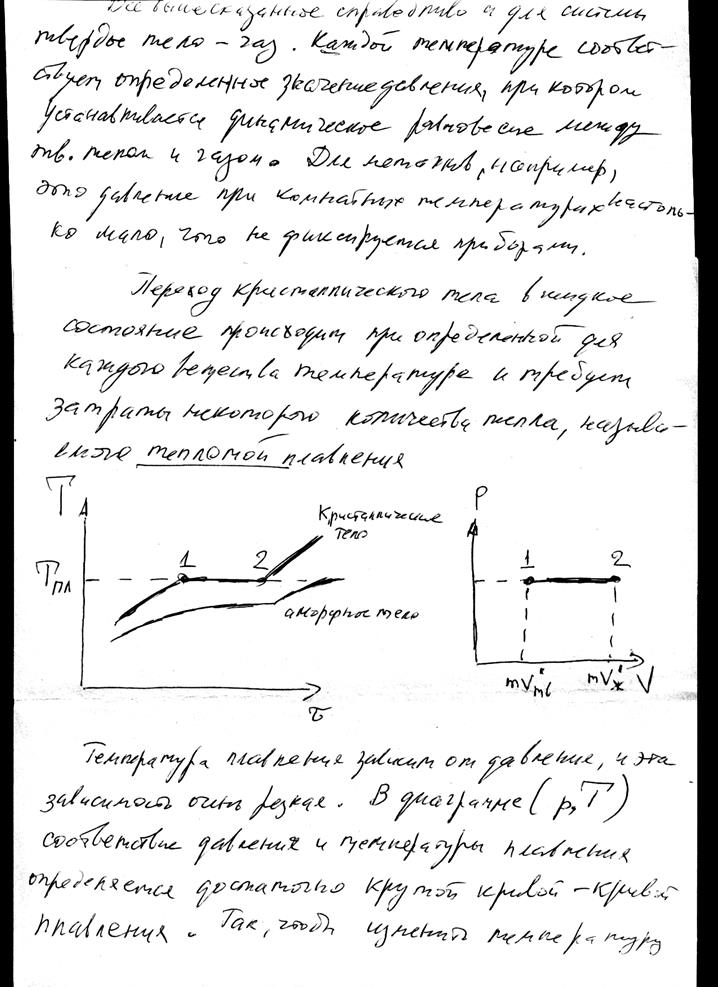 Все вышесказанное справедливо и для системы
твердое тело – газ. Каждой температуре соответ-
ствует определенное значение давления, при котором
устанавливается динамическое равновесие между
тв. телом и газом. Для металлов, например,
это давление при комнатных температурах настоль-
ко мало, что не фиксируется приборами.
Переход кристаллического тела в жидкое
состояние происходит при определенной для
каждого вещества температуре и требует
затраты некоторого количества тепла, называ-
емого теплотой плавления
T
Кристаллическое
тело
1
2
Tпл
аморфное тело
τ
P
1
2
mV'тв
mV'ж
V
Температура плавления зависит от давления, и эта
зависимость очень резкая. В диаграмме (p,T)
соответствие давления и температуры плавления
определяется достаточно крутой кривой – кривой
плавления. Так, чтобы изменить температуру